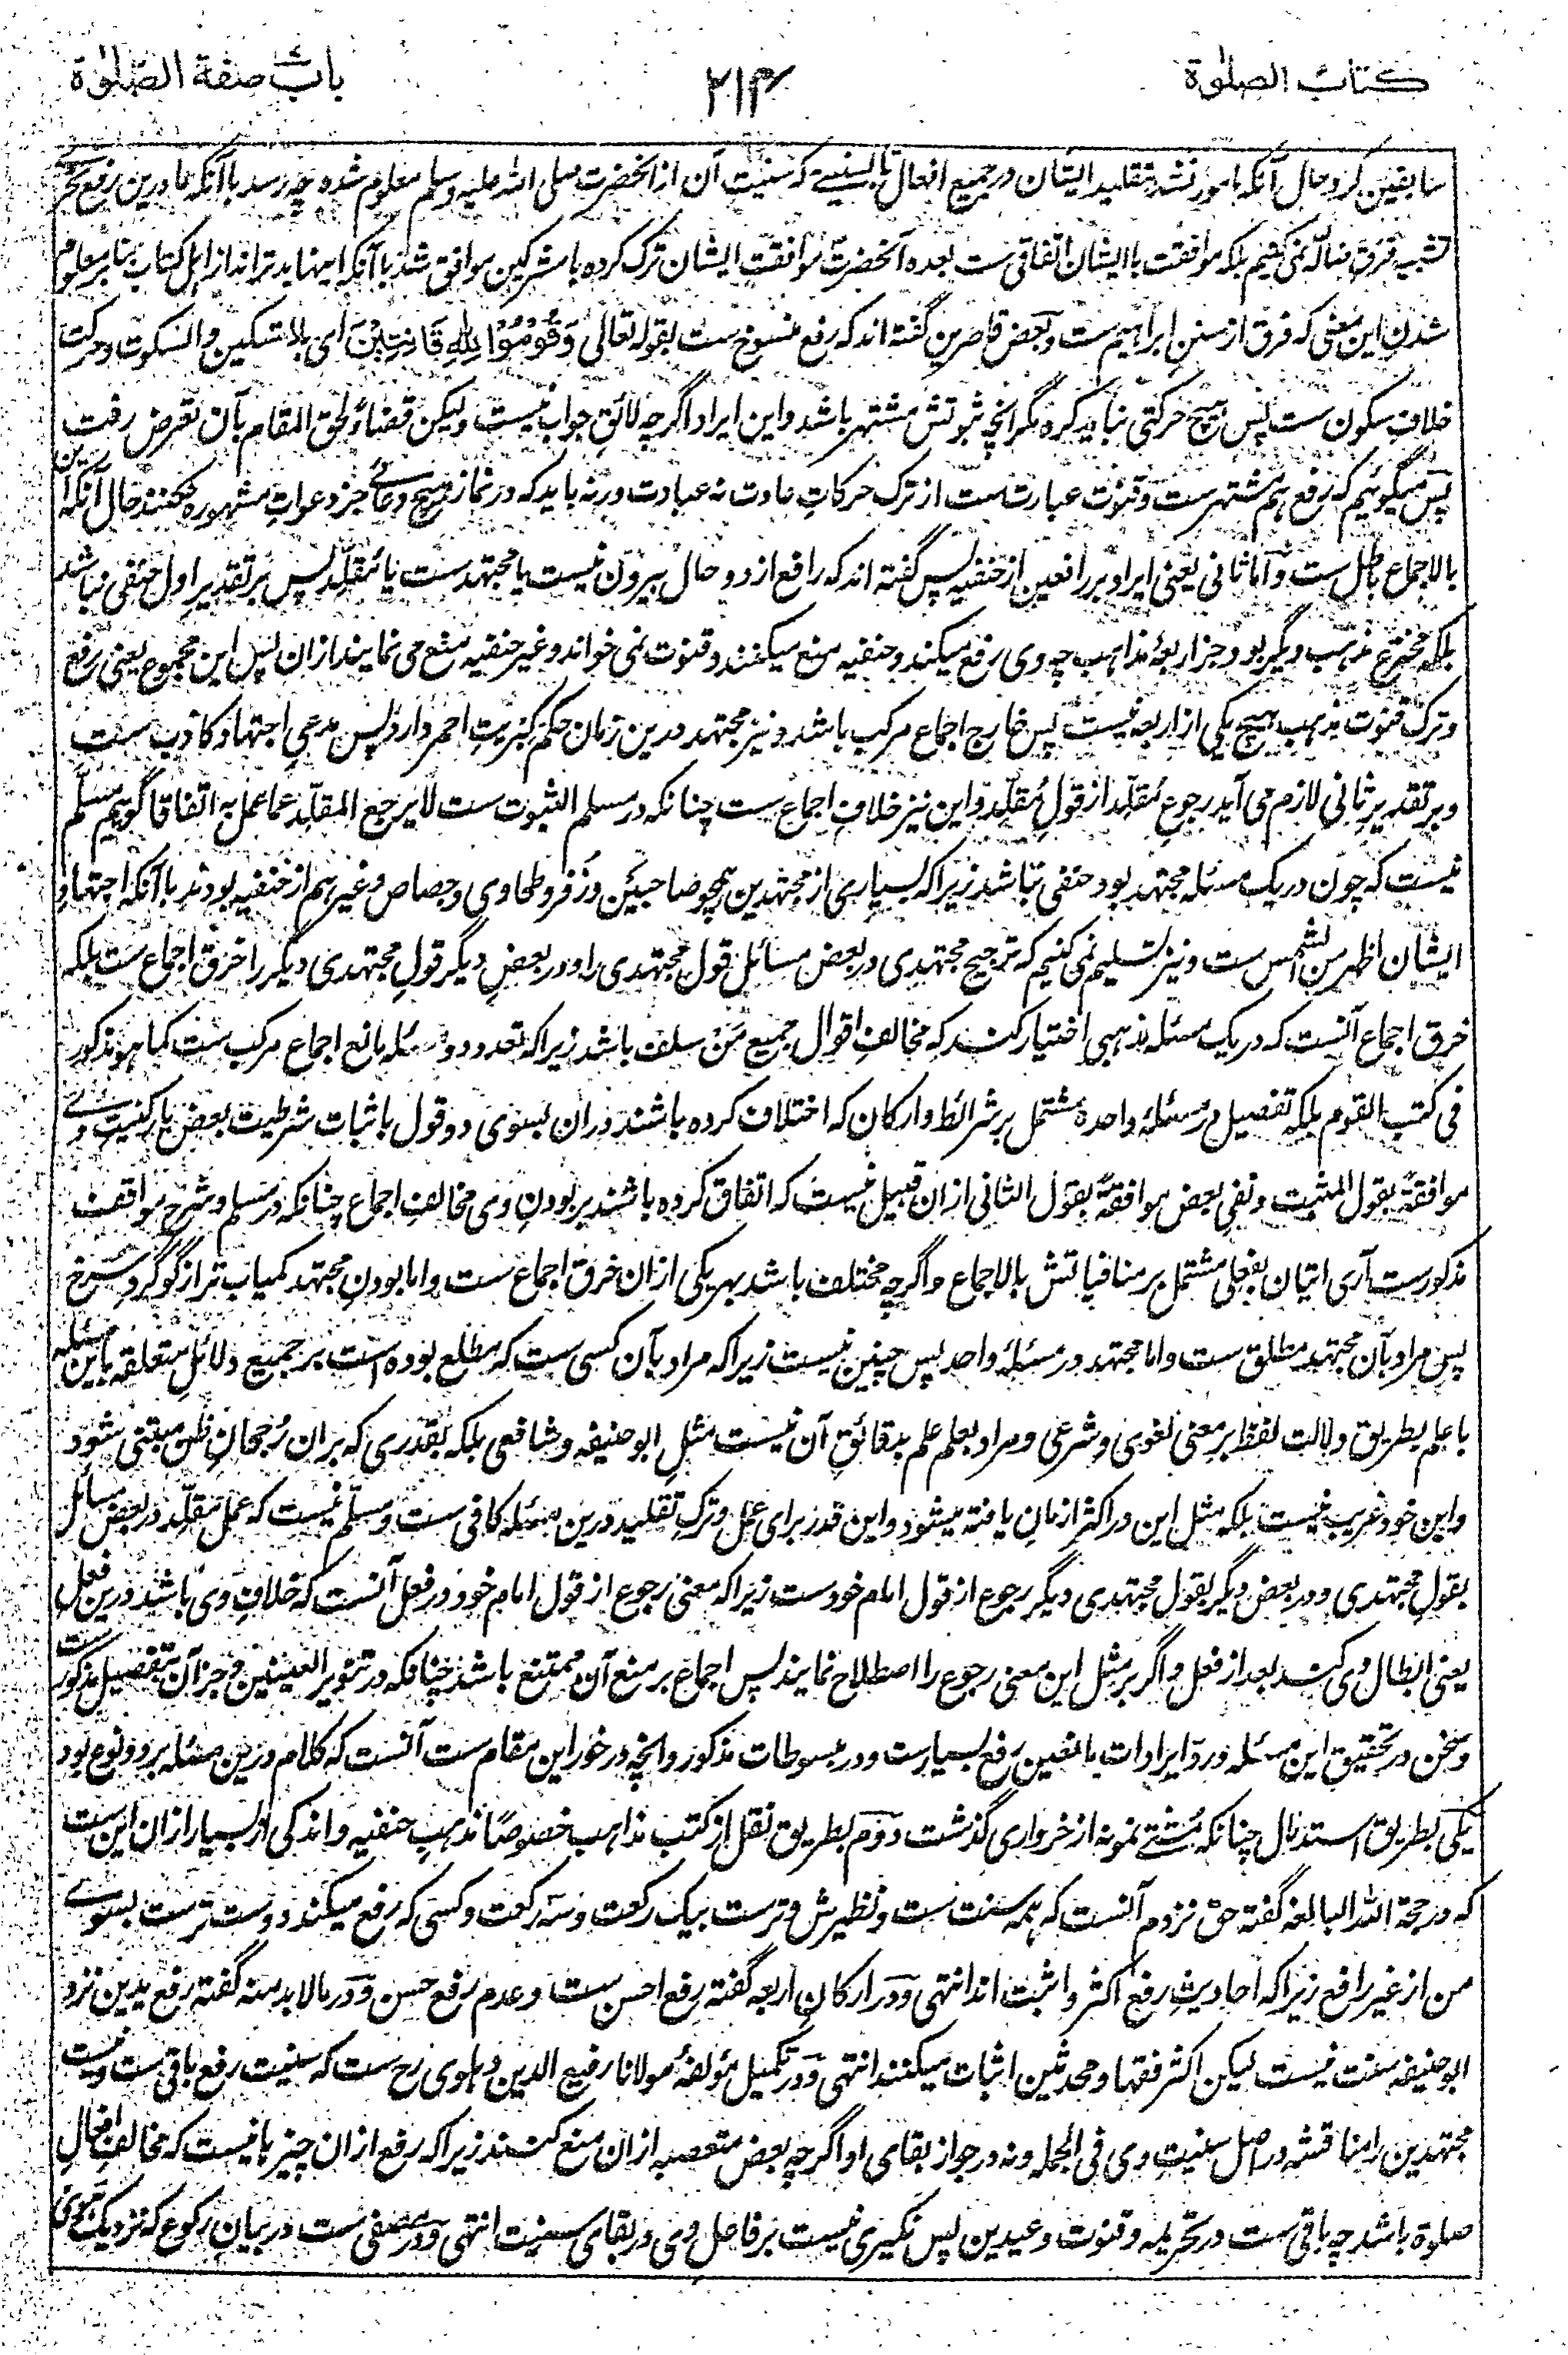 کتاب الصلوٰة
۲۱۴
باب صفة الصلوٰة
سابقین کرد و حال آنکه مامور نشد بتقلید ایشان در جمیع افعال تا بسنیتے که سنیت آن از آنحضرت صلی الله علیه وسلم معلوم شده چه رسد با آنکه ما درین رفع
تشبیه فرق ضاله نمی کنیم بلکه موافقت با ایشان اتفاقی ست بعده آنحضرت موافقت ایشان ترک کرده با مشرکین موافق شد با آنکه اینها بدتر اند از اهل کتاب بنابر معلوم
شدن این معنی که فرق از سنن ابراهیم ست و بعض قاصرین گفته اند که رفع منسوخ ست بقوله تعالی وَقُوْمُوْا لِلّٰهِ قَانِتِیْنَ ای بالتسکین والسکوت و حرکت
خلاف سکون ست پس هیچ حرکتی نباید کرد مگر آنچه ثبوتش مشتهر باشد و این ایراد اگرچه لائق جواب نیست ولیکن قضاءً لحق المقام بآن تعرض رفت
پس میگوئیم که رفع هم مشتهر ست و قنوت عبارت ست از ترک حرکات عادت نه عبادت ورنه باید که در نماز هیچ دعائے جز دعوات مشهوره نکنند حال آنکه این
بالاجماع باطل ست و اما ثانی یعنی ایراد بر رافعین از حنفیه پس گفته اند که رافع از دو حال بیرون نیست یا مجتهد ست یا مقلد پس بر تقدیر اول حنفی نباشد
بلکه مخترع مذهب دیگر بود جز اربعهٔ مذاهب چه وی رفع میکند و حنفیه منع میکنند و قنوت نمی خواند و غیر حنفیه منع می نمایند ازان پس این مجموع یعنی رفع
و ترک قنوت مذهب هیچ یکی از اربعه نیست پس خارج اجماع مرکب باشد و نیز مجتهد درین زمان حکم کبریت احمر دارد پس مدعی اجتهاد کاذب ست
و بر تقدیر ثانی لازم می آید رجوع مقلد از قول مقلد و این نیز خلاف اجماع ست چنانکه در مسلم الثبوت ست لا یرجع المقلد عما عمل به اتفاقا گوئیم مسلم
نیست که چون در یک مسئله مجتهد بود حنفی نباشد زیرا که بسیاری از مجتهدین همچو صاحبین و زفر و طحاوی و جصاص و غیرهم از حنفیه بودند با آنکه اجتهاد
ایشان اظهر من الشمس ست و نیز تسلیم نمی کنیم که ترجیح مجتهدی در بعض مسائل قول مجتهدی را و در بعض دیگر قول مجتهدی دیگر را خرق اجماع ست بلکه
خرق اجماع آنست که در یک مسئله مذهبی اختیار کند که مخالف اقوال جمیع من سلف باشد زیرا که تعدد دو مسئله مانع اجماع مرکب ست کما هو مذکور
فی کتب القوم بلکه تفصیل در مسئلهٔ واحده مشتمل بر شرائط و ارکان که اختلاف کرده باشند دران بسوی دو قول باثبات شرطیت بعض یا رکنیت وے
موافقةً بقول المثبت و نفی بعض موافقةً بقول الثانی ازان قبیل نیست که اتفاق کرده باشند بر بودن وی مخالف اجماع چنانکه در مسلم و شرح مواقف
مذکور ست آری اتیان بفعلی مشتمل بر منافیاتش بالاجماع و اگرچه مختلف باشد بهر یکی ازان خرق اجماع ست و اما بودن مجتهد کمیاب تر از گوگرد سرخ
پس مراد بآن مجتهد مطلق ست و اما مجتهد در مسئلهٔ واحد پس چنین نیست زیرا که مراد بآن کسی ست که مطلع بوده است بر جمیع دلائل متعلقه باین مسئله
با علم بطریق دلالت لفظ بر معنی لغوی و شرعی و مراد بعلم علم بدقائق آن نیست مثل ابو حنیفه و شافعی بلکه بقدری که بران رجحان ظن مبتنی شود
و این خود غریب نیست بلکه مثل این در اکثر ازمان یافته میشود و این قدر برای عمل و ترک تقلید درین مسئله کافی ست و مسلم نیست که عمل مقلد در بعض مسائل
بقول مجتهدی و در بعض دیگر بقول مجتهدی دیگر رجوع از قول امام خود ست زیرا که معنی رجوع از قول امام خود در فعل آنست که خلاف وی باشد درین فعل
یعنی ابطال وی کند بعد از فعل و اگر بر مثل این معنی رجوع را اصطلاح نمایند پس اجماع بر منع آن ممتنع باشد چنانکه در تنویر العینین و جز آن بتفصیل مذکور ست
و سخن در تحقیق این مسئله و رد ایرادات مانعین رفع بسیار ست و در مبسوطات مذکور و آنچه در خور این مقام ست آنست که کلام درین مسئله بر دو نوع بود
یکی بطریق استدلال چنانکه مشتے نمونه از خرواری گذشت دوم بطریق نقل از کتب مذاهب خصوصًا مذهب حنفیه و اندکی از بسیار ازان این ست
که در حجة الله البالغه گفته حق نزدم آنست که همه سنت ست و نظیرش وتر ست بیک رکعت و سه رکعت و کسی که رفع میکند دوست تر ست بسوے
من از غیر رافع زیرا که احادیث رفع اکثر و اثبت اند انتهی و در ارکان اربعه گفته رفع احسن ست و عدم رفع حسن و در مالابد منه گفته رفع یدین نزد
ابو حنیفه سنت نیست لیکن اکثر فقها و محدثین اثبات میکنند انتهی و در تکمیل مؤلفهٔ مولانا رفیع الدین دهلوی رح ست که سنیت رفع باقی ست و نیست
مجتهدین را مناقشه در اصل سنیت وی فی الجمله و نه در جواز بقای او اگرچه بعض متعصبه ازان منع کنند زیرا که رفع ازان چیزها نیست که مخالف افعال
صلوة باشد چه باقی ست در تحریمه و قنوت و عیدین پس نکیری نیست بر فاعل وی در بقای سنیت انتهی و در مصفی ست در بیان رکوع که نزدیک